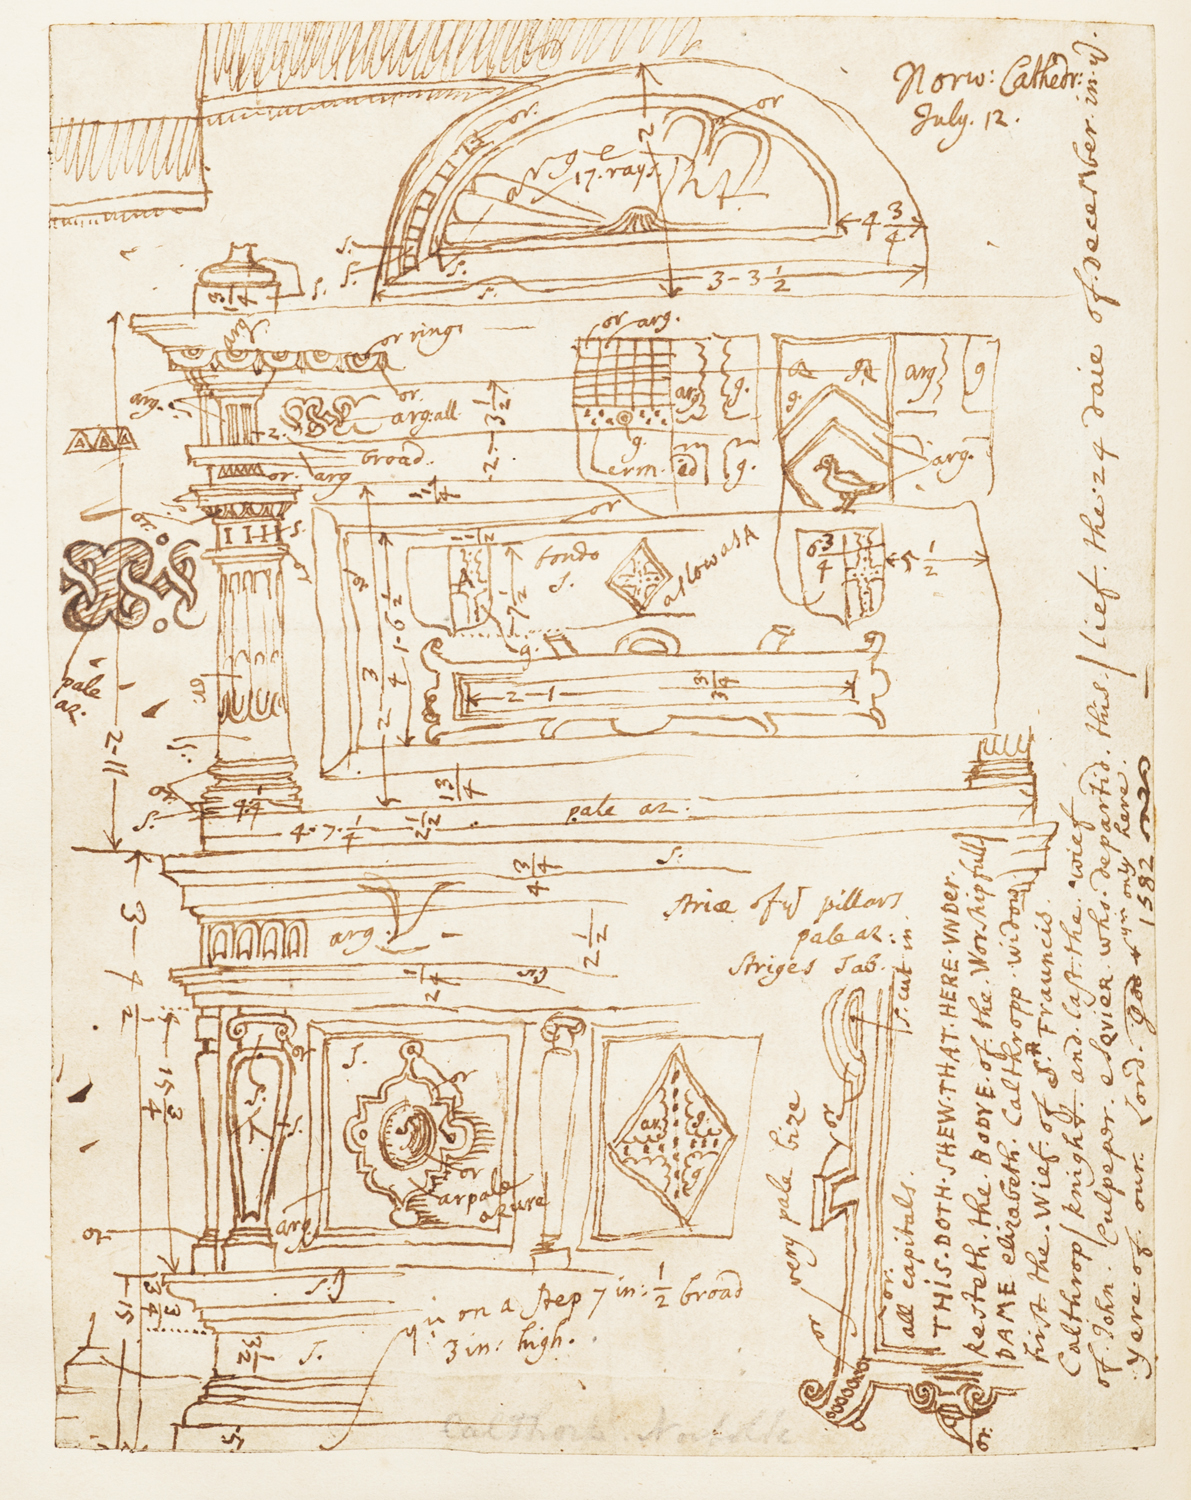 Norw: Cathedr:
July. 12.
or.
or
2
17. rays.
4 3/4
3 - 3 1/2
s.
s.
s.
s.
s.
3 1/4
or ring
or arg.
arg.
or
arg: all
2 - 3 1/2
arg
g.
g.
arg
g
broad.
or. arg
g
erm.
g.
arg.
A A A
or.
or
s.
or
or
1/2
tondo
s.
a slow as A
6 3/4
5 1/2
7 1/2
g.
1 - 6 1/2
2 - 1
3 3/4
pale
az.
or.
2 - 11
s.
or.
s.
4 1/4
4. 7. 1/4
2 1/2
1 3/4
pale az:
3/4
4
s.
arg.
2 1/2
2 1/4
striæ of yͤ pillars
pale az:
striges sab.
s. cut in
3 - 4 1/2
15 3/4
s.
or
s.
or
ar pale
azure
arg
or
az
g.
very pale bize
or
or
or.
all capitals.
s.
s.
15
3 1/2
yis on a step 7 in: 1/2 broad
3 in: high.
THIS. DOTH. SHEW. THAT. HERE VNDER.
Resteth. the. BODYE. of. the. Worshipfull
DAME elizabeth. Calthropp. widow
first the. Wief. of Sʳ Frauncis.
Calthrop knight. and. last. the. wief
of. John. Culpeper. esqvier. who. departid. this. lief. the. 24 daie of. december. in yͤ.
yere of our. Lord. god 1582
yn only here.
or.
Calthorp. Norfolk